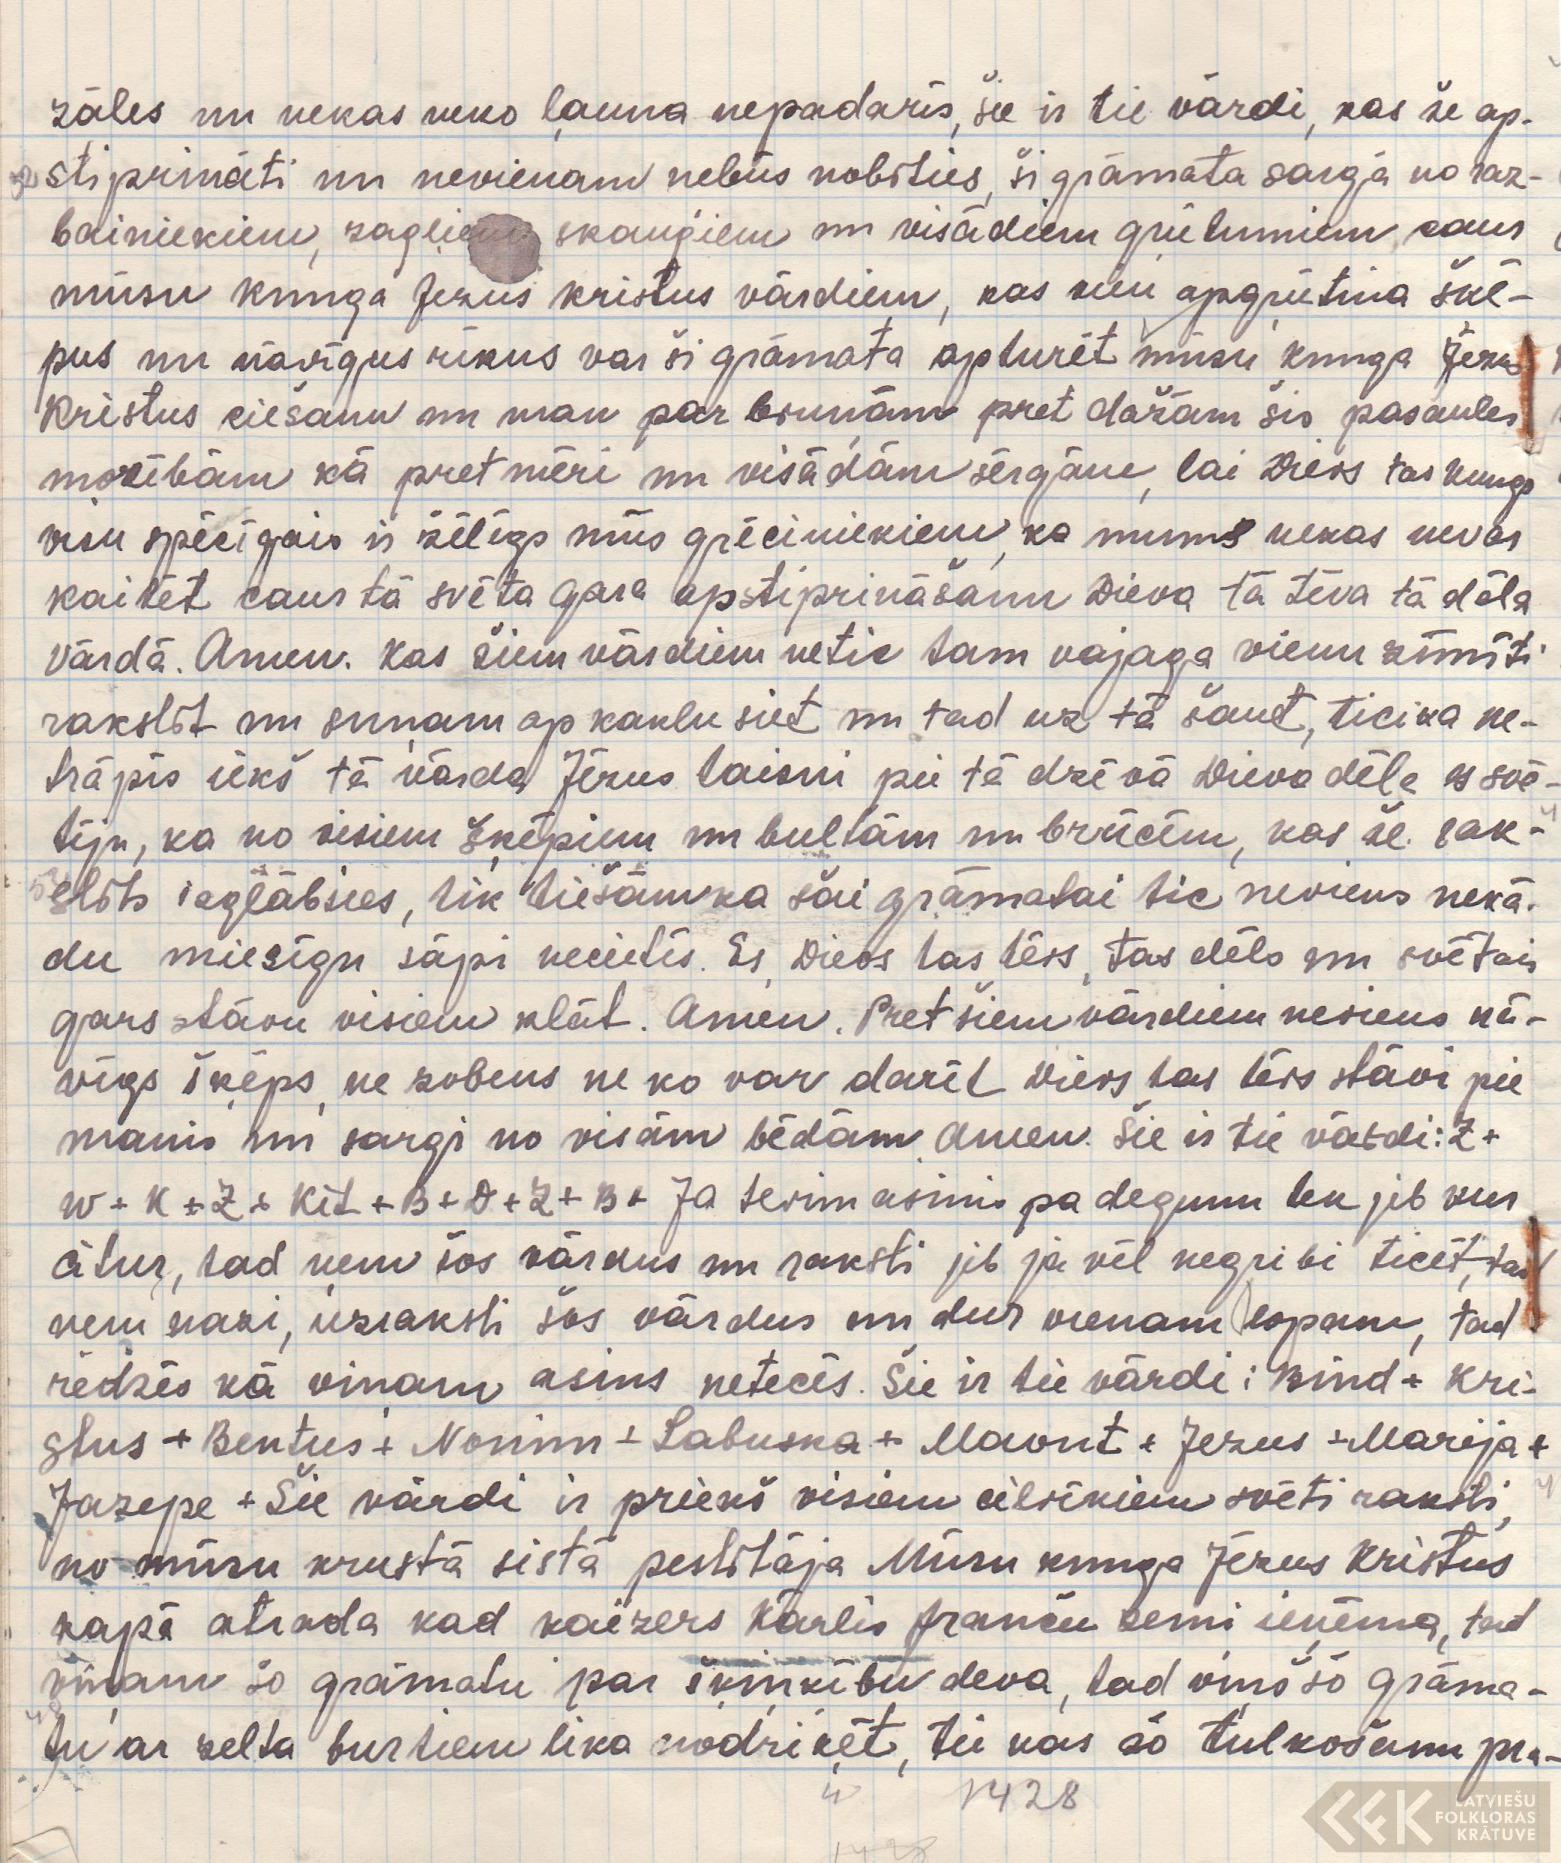 zāles un nekas neko ļauna nepadarīs, šie ir tie vārdi, kas še ap-
stiprināti un nevienam nebūs nobīties, ši grāmata sargā no raz-
bainiekiem, zagļiem skauģiem un visādiem grūtumiem caur
mūsu kunga Jezus kristus vārdiem, kas viņu apgrūtina šķē-
pus un nāvīgus rīkus var ši grāmata apturēt mūsu kunga Jezus
Kristus ciešanu un man par brunām pret dažām šīs pasaules
mocībām kā pret mēri un visādām sērgām, lai Dievs tas kungs
visu spēcīgais ir žēlīgs mūs grēciniekiem, ka mums nekas nevar
kaitēt caur tā svēta gara apstiprināšanu Dieva tā tēva tā dēla
vārdā. Amen. Kas šiem vārdiem netic tam vajaga vienu zīmīti
rakstīt un suņam ap kaklu siet un tad uz tā šaut, ticika ne-
trāpīs iekš tā vārda Jēzus taisni pie tā dzīvā Dieva dēla es svē-
tiju, ka no visiem šķēpiem un bultām un brūcēm, kas še rak-
stīts izglābsies, tik tiešām ka šai grāmatai tic neviens nekā-
du miesīgu sāpi necietīs. Es, Dievs tas tēvs, tas dēls un svētais
gars stāvu visiem klāt. Amen. Pret šiem vārdiem neviens nā-
vīgs šķēps, ne zobens ne ko var darīt Dievs tas tēvs stāvi pie
manis un sargi no visām bēdām Amen. Šie ir tie vārdi: Z +
W + K + Z + Kit + B + D + Z + B + Ja tevim asinis pa degunu tek jeb kur
citur, tad ņem šos vārdus un raksti jeb ja vēl negribi ticēt, tad
ņem nazi, uzraksti šos vārdus un dur vienam lopam, tad
redzēs kā viņam asins netecēs. Šie ir tie vārdi: Bind + Kri-
stus + Bentus + Norinn + Labuska + Mavnt + Jezus + Marija +
Jazepe + Šie vārdi ir priekš visiem cilvēkiem svēti raksti,
no mūsu krustā sistā pestītāja Mūsu kunga Jēzus Kristus
kapā atrada kad kaizers Kārlis franču zemi ieņēma, tad
viņam šo grāmatu par šķiņķību deva, tad viņš šo grāma-
tu ar zelta burtiem lika nodriķēt, tie kas šo tulkošanu pra-
1428
LATVIEŠU
FOLKLORAS
KRĀTUVE